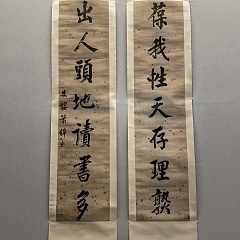 葆我性天存理熟
出人頭地讀書多